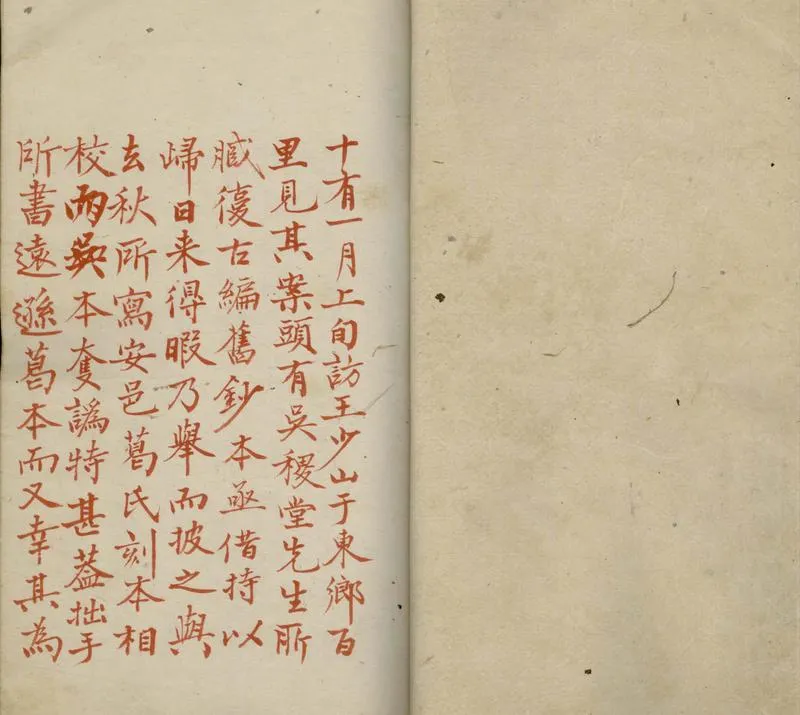 十有一月上旬訪王少山于東鄉百
里見其案頭有吳稷堂先生所
臧復古編舊鈔本亟借持以
歸日来得暇乃舉而披之與
去秋所寫安邑葛氏刻本相
校而吳本奪譌特甚葢拙手
所書遠遜葛本而又幸其為